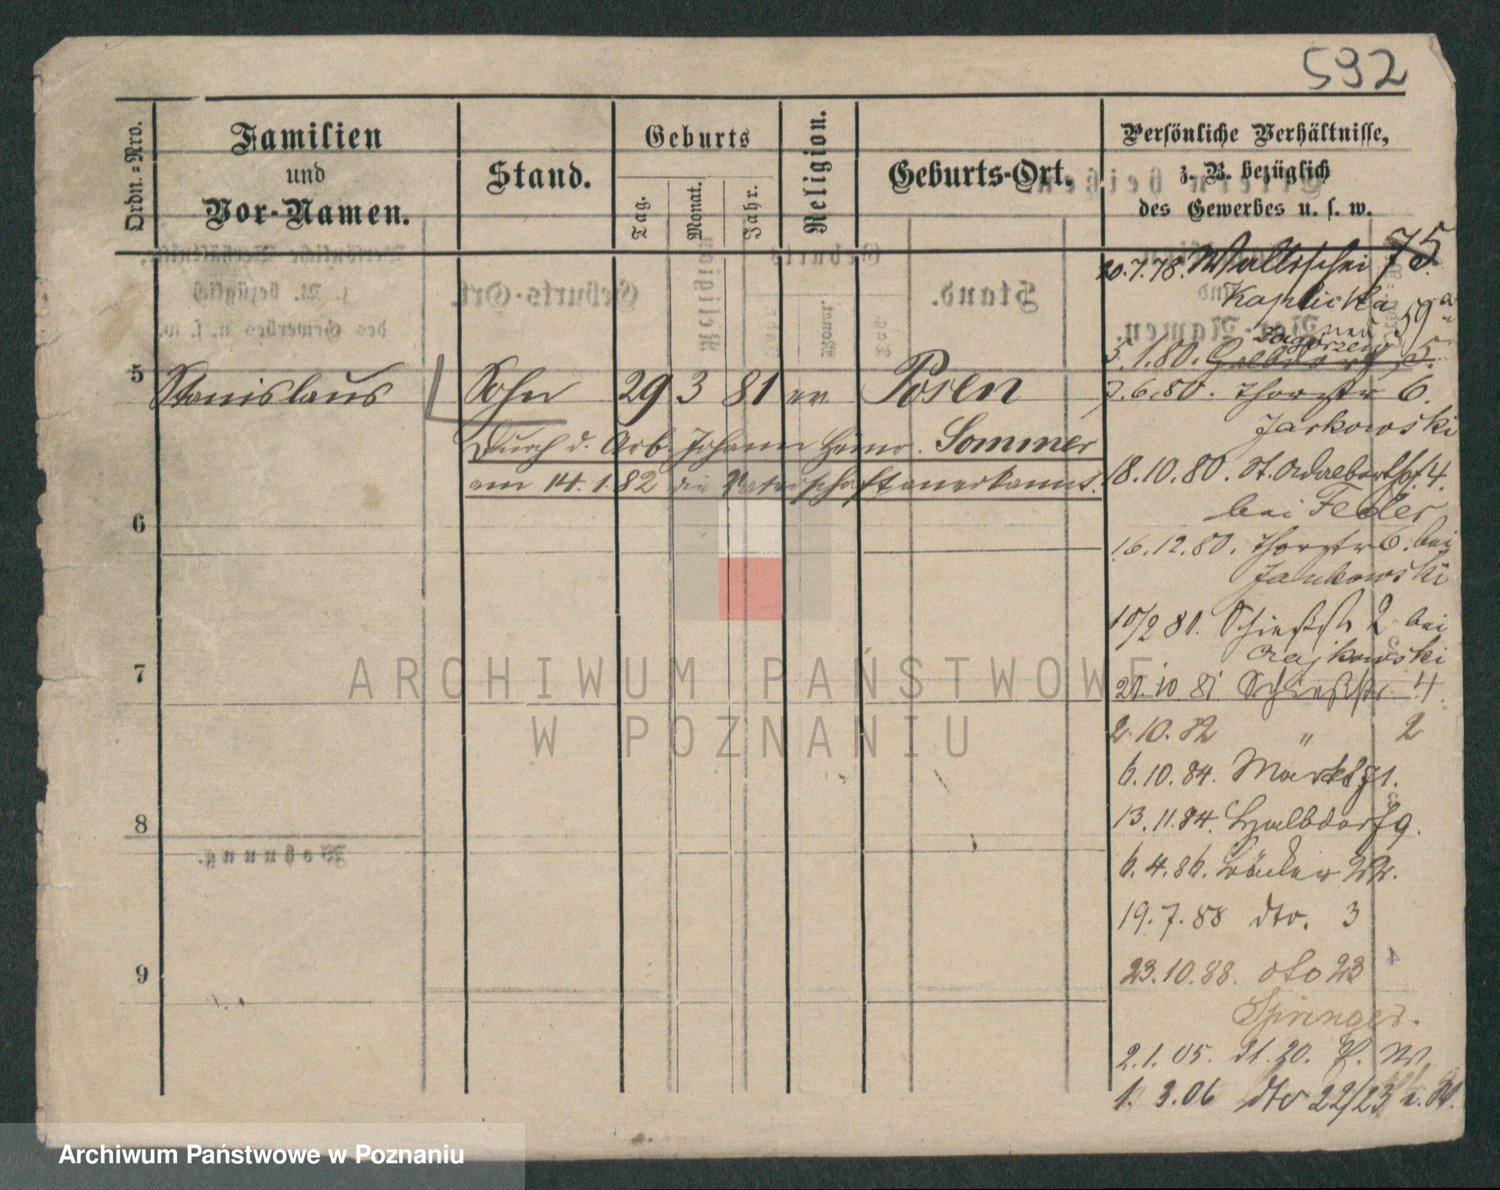 592
Ordn.=Nro.
Familien
und
Vor-Namen.
Stand.
Geburts
Tag.
Monat.
Jahr.
Religion.
Geburts-Ort.
Persönliche Verhältnisse,
z. B. bezüglich
des Gewerbes u. s. w.
5
Stanislaus
Sohn
29 3 81
Posen
Durch d. Arb. Johann Sommer
am 14.1.82 die Vaterschaft anerkannt.
6
7
8
9
20.7.78. Wallischei 75
Kaplicka
59a
5.1.80.
Zagorze
7.6.80. Thorstr 6.
Jankowski
18.10.80. St. Adalbertstr. 4.
bei Feder
16.12.80. Thorstr 6. bei
Jankowski
10/2 81. Schießstr 2 bei
Rajkowski
21.10 81 Schießstr. 4
2.10.82 " 2
6.10.84. Markt 71.
13.11.84. Halbdorf 9.
6.4.86. Bäcker 22.
19.7.88 dto. 3
23.10.88. dto 23
Springer.
2.1.05. 21.20.
1.3.06 dto 22/23
ARCHIWUM PAŃSTWOWE
W POZNANIU
Archiwum Państwowe w Poznaniu